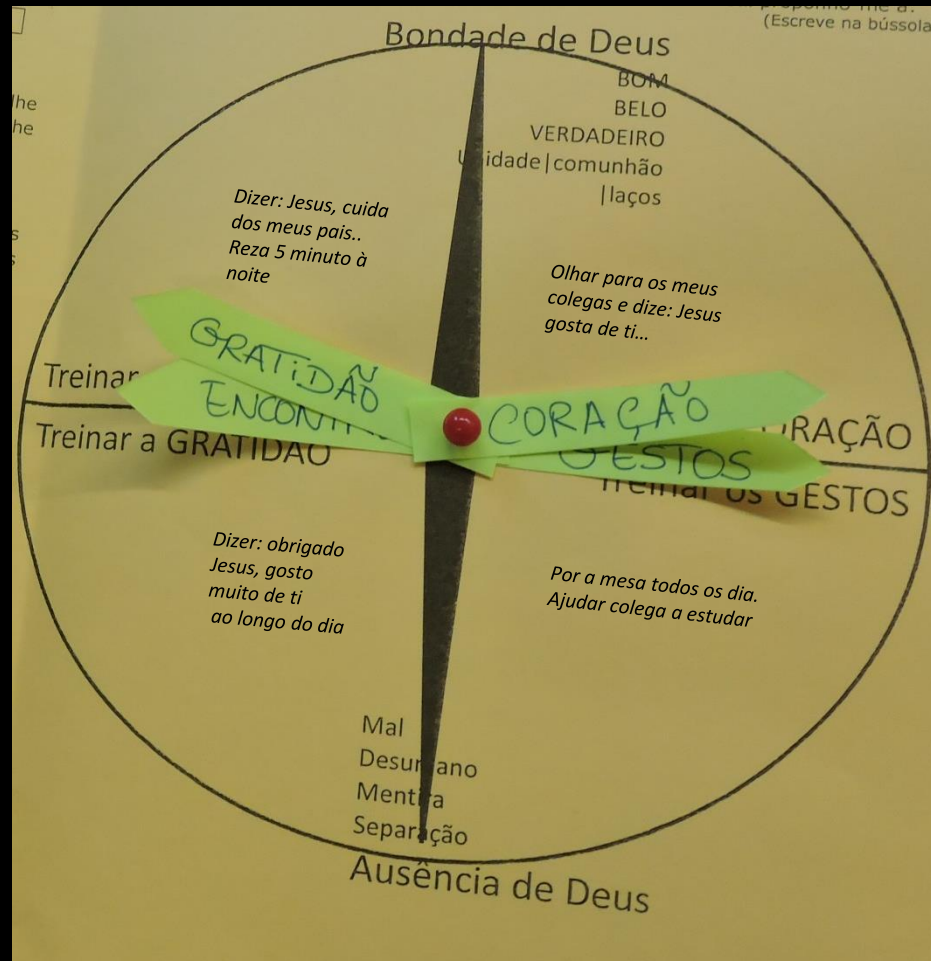 (Escreve na bússola
lhe
he
Bondade de Deus
BOM
BELO
VERDADEIRO
Unidade|comunhão
|laços
Dizer: Jesus, cuida
dos meus pais..
Reza 5 minuto à
noite
Olhar para os meus
colegas e dize: Jesus
gosta de ti...
GRATIDÃO
CORAÇÃO
GESTOS
Treinar
RAÇÃO
Treinar a GRATIDÃO
Treinar os GESTOS
Dizer: obrigado
Jesus, gosto
muito de ti
ao longo do dia
Por a mesa todos os dia.
Ajudar colega a estudar
Mal
Desumano
Mentira
Separação
Ausência de Deus